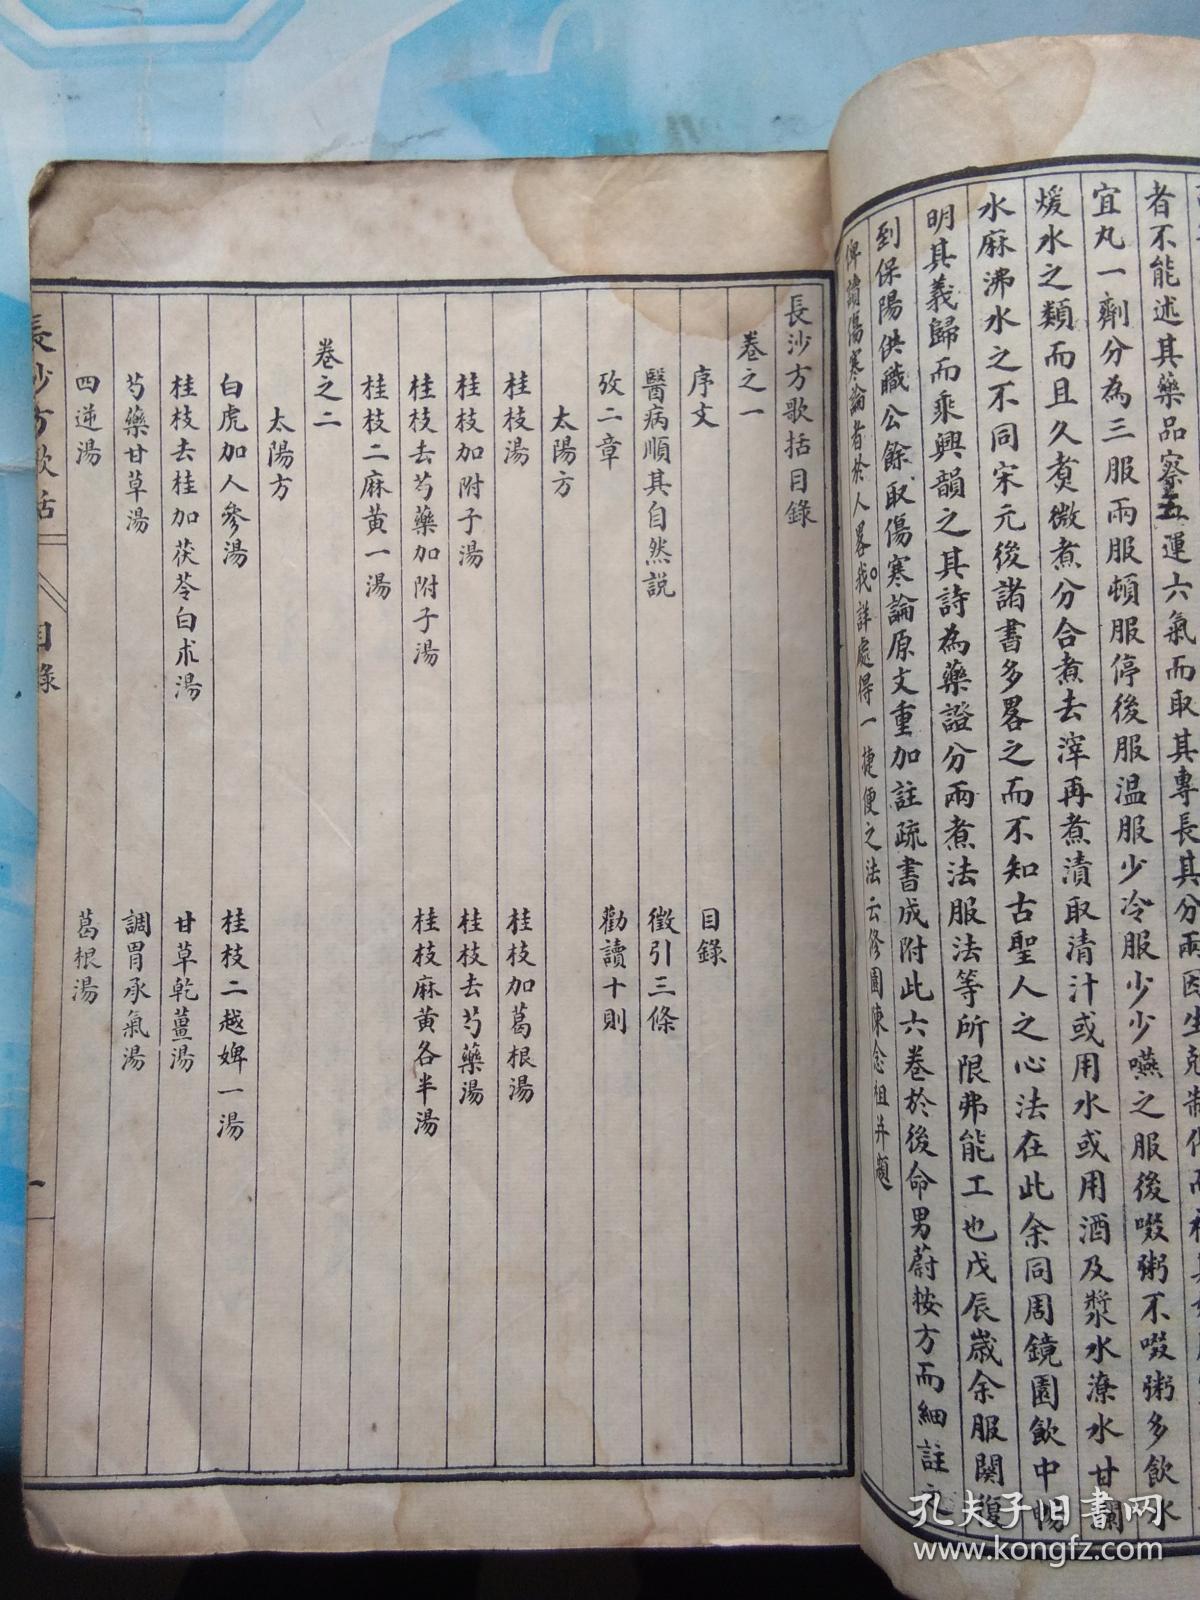 者不能述其藥品察五運六氣而取其專長其分兩因生剋制化而
宜丸一劑分為三服兩服頓服停後服温服少冷服少少嚥之服後啜粥不啜粥多飲水
煖水之類而且久煑微煮分合煮去滓再煮漬取清汁或用水或用酒及漿水潦水甘瀾
水麻沸水之不同宋元後諸書多畧之而不知古聖人之心法在此余同周鏡園飲中暢
明其義歸而乘興韻之其詩為藥證分兩煮法服法等所限弗能工也戊辰歲余服闋復
到保陽供職公餘取傷寒論原文重加註疏書成附此六卷於後命男蔚按方而細註之
俾讀傷寒論者於人畧我詳處得一捷便之法云修園陳念祖并題
長沙方歌括目錄
卷之一
序文 目錄
醫病順其自然説 徵引三條
攷二章 勸讀十則
太陽方
桂枝湯 桂枝加葛根湯
桂枝加附子湯 桂枝去芍藥湯
桂枝去芍藥加附子湯 桂枝麻黄各半湯
桂枝二麻黄一湯
卷之二
太陽方
白虎加人參湯 桂枝二越婢一湯
桂枝去桂加茯苓白朮湯 甘草乾薑湯
芍藥甘草湯 調胃承氣湯
四逆湯 葛根湯
長沙方歌括 目錄 一
孔夫子旧書网
www.kongfz.com